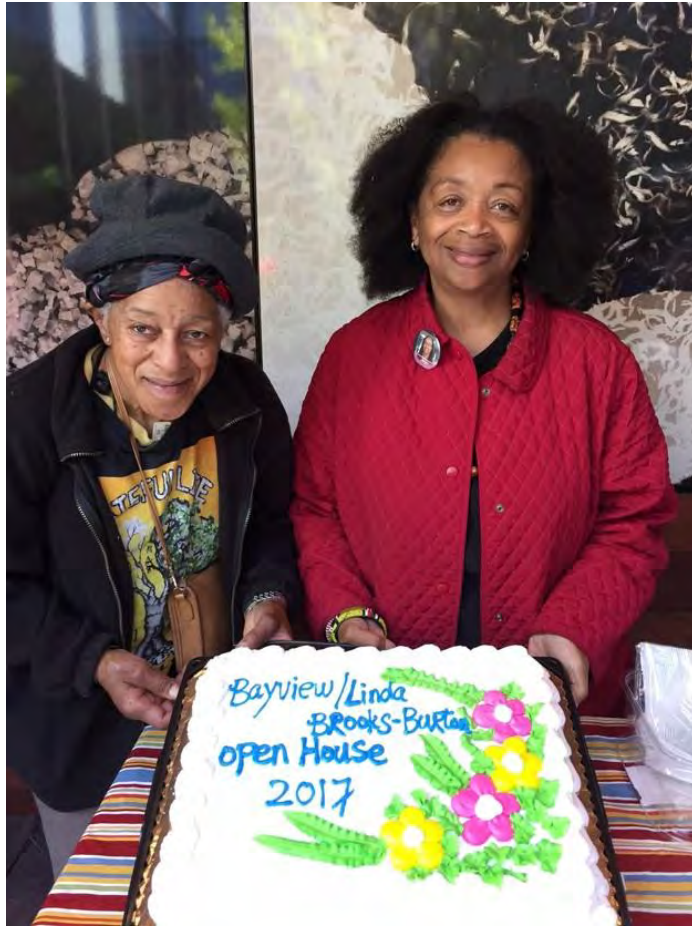 Bayview/Linda
BROOKS-BURTON
open House
2017